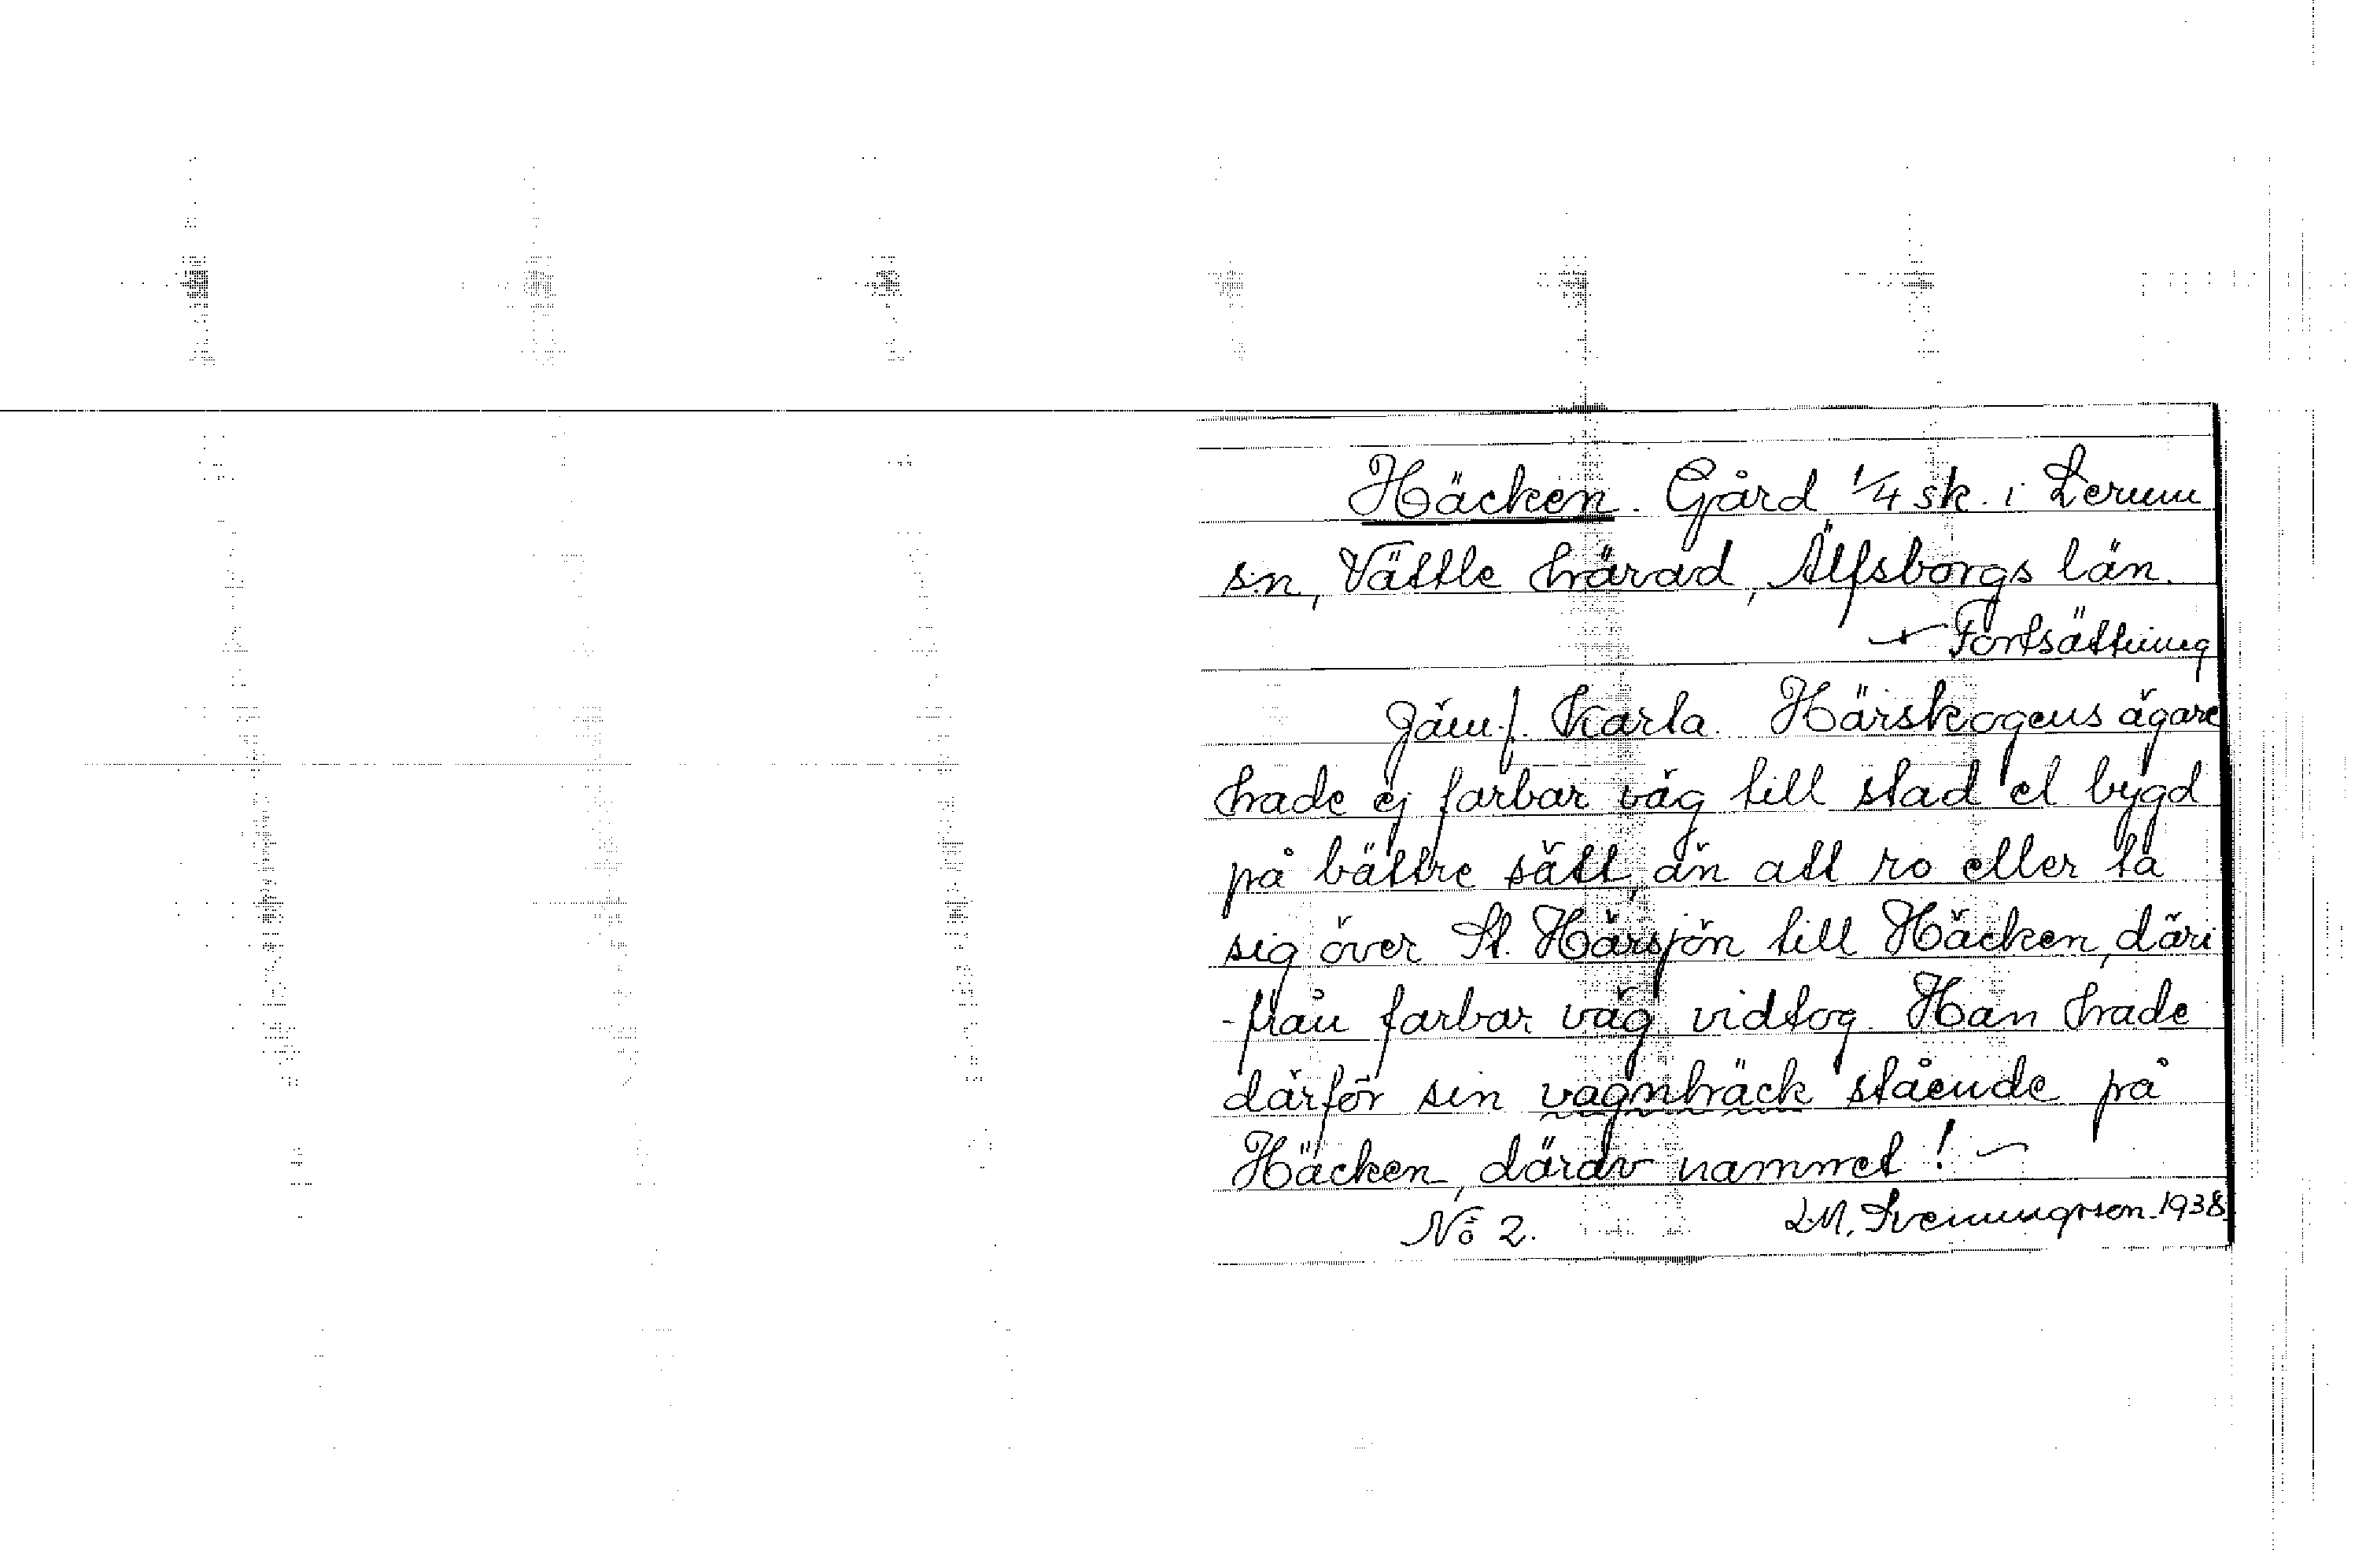 Häcken. Gård 1/4 sk. i Lerum
sn, Vättle härad, Älfsborgs län.
Fortsättning
Jämf. Karta. Härskogens ägare
hade ej farbar väg till stad el bygd
på bättre sätt, än att ro eller ta
sig över St. Härsjön till Häcken, däri
-från farbar väg vidtog. Han hade
därför sin vagnhäck stående på
Häcken, därav namnet! —
No 2. L.M. Svenungsson. 1938.